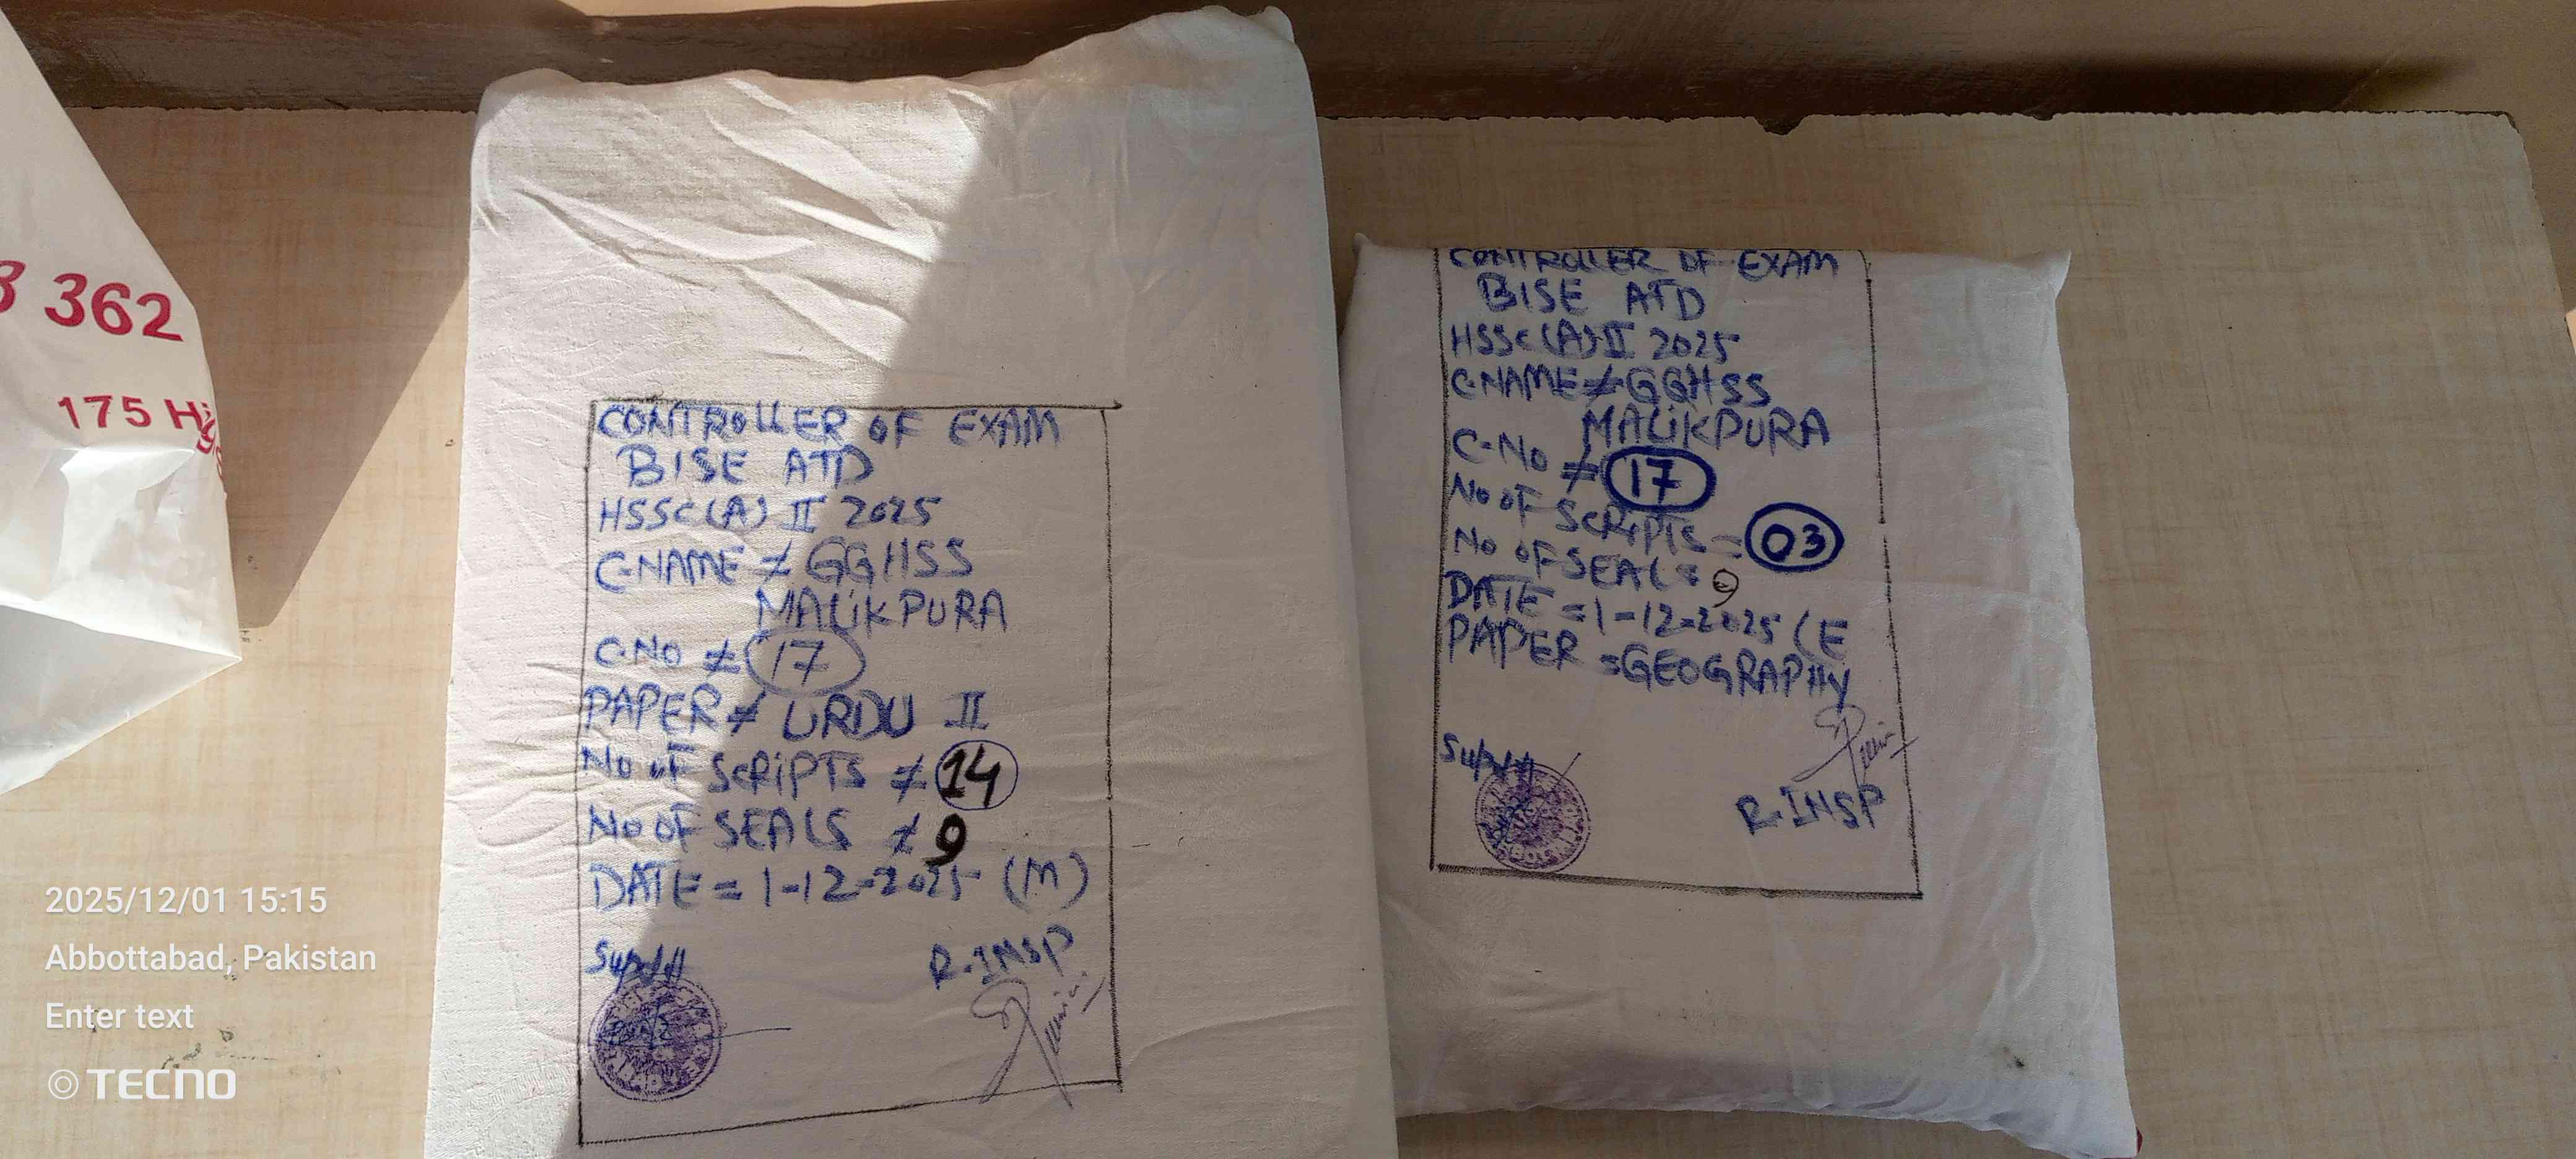 3 362
175 H
CONTROLLER OF EXAM
BISE ATD
HSSC(A) II 2025
C.NAME ≠ GGHSS
MALIKPURA
C.NO ≠ 17
PAPER ≠ URDU II
No OF SCRIPTS ≠ 14
No OF SEALS ≠ 9
DATE = 1-12-2025 (M)
Supdtt
R.INSP
CONTROLLER OF EXAM
BISE ATD
HSSC(A) II 2025
C.NAME ≠ GGHSS
MALIKPURA
C-No ≠ 17
No OF SCRIPTS = 03
No OF SEALS = 9
DATE = 1-12-2025 (E
PAPER = GEOGRAPHY
Supdtt
R.INSP
2025/12/01 15:15
Abbottabad, Pakistan
Enter text
TECNO